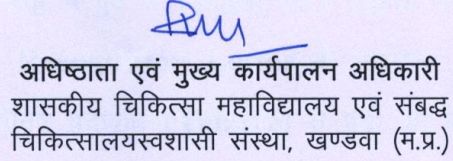 अधिष्ठाता एवं मुख्य कार्यपालन अधिकारी
शासकीय चिकित्सा महाविद्यालय एवं संबद्ध
चिकित्सालयस्वशासी संस्था, खण्डवा (म.प्र.)